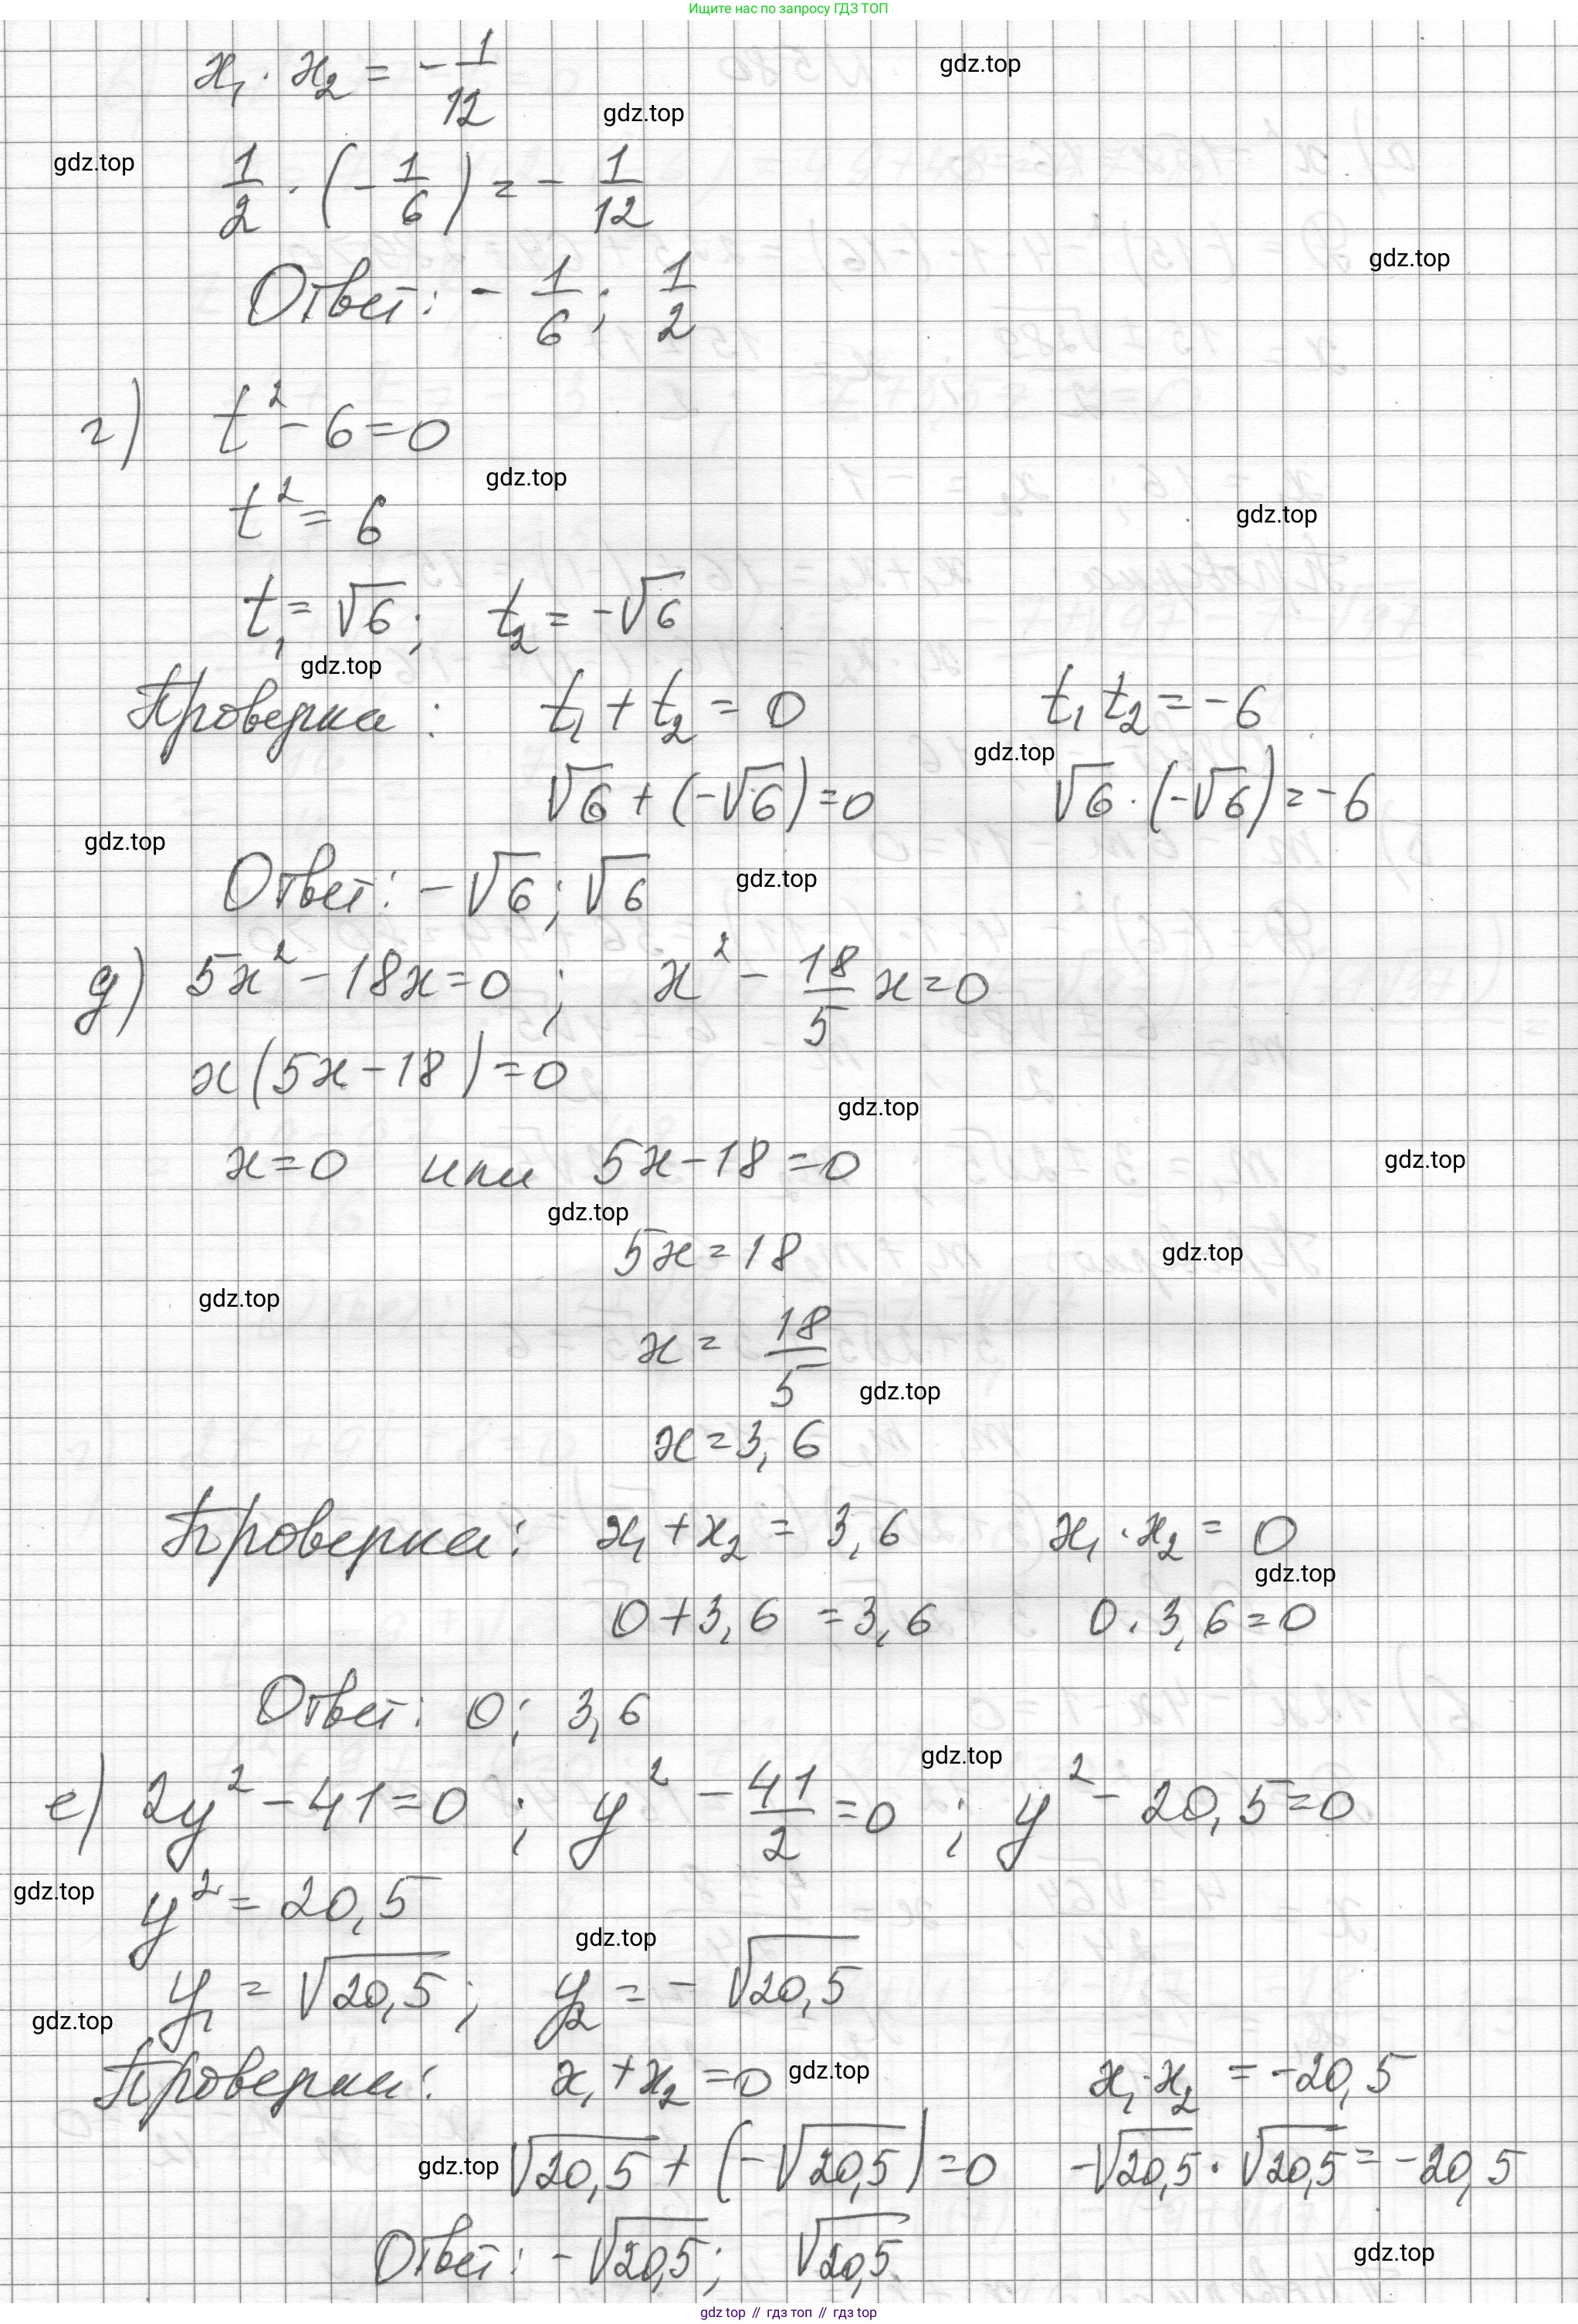 Ищите нас по запросу ГДЗ ТОП
x₁ · x₂ = - 1/12
gdz.top
gdz.top
gdz.top
1/2 · (- 1/6) = - 1/12
gdz.top
Ответ: - 1/6; 1/2
г) t² - 6 = 0
gdz.top
t² = 6
gdz.top
t₁ = √6; t₂ = -√6
gdz.top
Проверка: t₁ + t₂ = 0 t₁ t₂ = -6
gdz.top
√6 + (-√6) = 0 √6 · (-√6) = -6
gdz.top
Ответ: -√6; √6
gdz.top
д) 5x² - 18x = 0; x² - 18/5 x = 0
x(5x - 18) = 0
gdz.top
x = 0 или 5x - 18 = 0
gdz.top
gdz.top
5x = 18
gdz.top
gdz.top
x = 18/5
gdz.top
x = 3,6
Проверка: x₁ + x₂ = 3,6 x₁ · x₂ = 0
gdz.top
0 + 3,6 = 3,6 0 · 3,6 = 0
Ответ: 0; 3,6
gdz.top
е) 2y² - 41 = 0; y² - 41/2 = 0; y² - 20,5 = 0
gdz.top
y² = 20,5
gdz.top
y₁ = √20,5; y₂ = - √20,5
gdz.top
Проверка: x₁ + x₂ = 0 x₁ · x₂ = -20,5
gdz.top
√20,5 + (-√20,5) = 0 -√20,5 · √20,5 = -20,5
gdz.top
Ответ: -√20,5; √20,5
gdz.top
gdz.top // гдз топ // гдз top